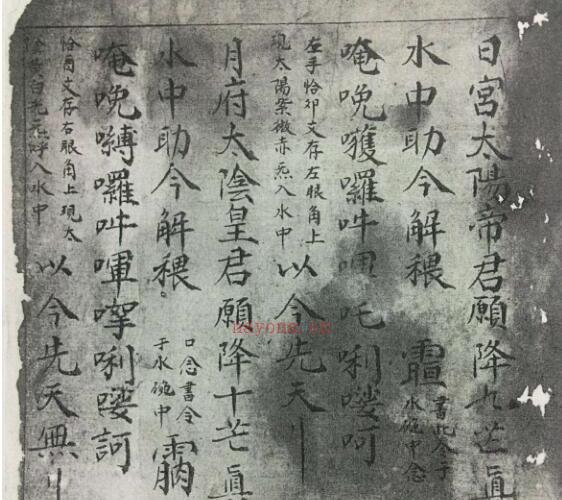 日宮太陽帝君願降九芒真
水中助今解穢
書此令于
水碗中念
唵晚嚄囉吽吒唎嘍呵
左手恰卯文存左眼角上
現太陽紫微赤炁入水中
以今先天
月府太陰皇君願降十芒真
水中助今解穢
口念書令
于水碗中
唵晚嚩囉吽唎嘍訶
恰文存右眼角上現太
白光炁呼入水中
以今先天無
nayona.cn